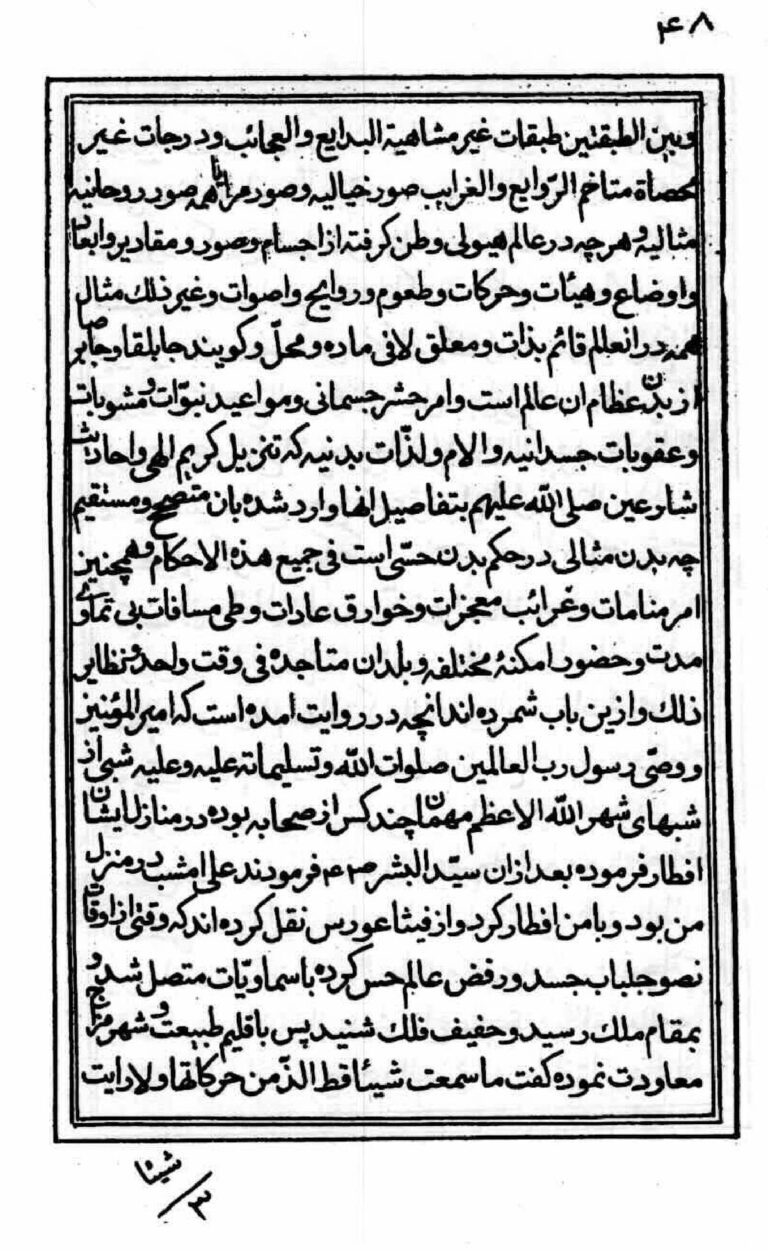 ۴۸
وبین الطبقتین طبقات غیر مشاهیة البدایع والعجائب ودرجات غیر
محصاة متاخم الرّوایع والغرایب صور خیالیه وصور مرایا همه صور روحانیه
مثالیه وهر چه در عالم هیولی وطن کرفته از اجسام وصور ومقادیر وابعاد
واوضاع وهیئات وحرکات وطعوم وروایح واصوات وغیر ذلك مثال
همه در انعالم قائم بذات ومعلق لا فی ماده ومحلّ وکویند جابلقا وجابر صا
از بدن عظام ان عالم است وامر حشر جسمانی ومواعید نبوّات ومثوبات
وعقوبات جسدانیه والام ولذّات بدنیه که تنزیل کریم الهی واحادیث
شارعین صلی الله علیهم بتفاصیل انها وارد شده بان متصحح ومستقیم
چه بدن مثالی در حکم بدن حسّی است فی جمیع هذه الاحکام وهمچنین
امر منامات وغرائب معجزات وخوارق عادات وطی مسافات بی تمادی
مدت وحضور امکنهٔ مختلفه وبلدان متاجده فی وقت واحد ونظایر
ذلك وازین باب شمرده اند انچه در روایت امده است که امیر المؤمنین
ووصّی رسول رب العالمین صلوات الله وتسلیماته علیه وعلیه شبی از
شبهای شهر الله الاعظم مهمان چند کس از صحابه بوده در منازل ایشان
افطار فرموده بعد ازان سیّد البشر فرمودند علی امشب در منزل
من بود وبا من افطار کرد واز فیثاعورس نقل کرده اند که وقتی از اوقات
نصو جلباب جسد ورفض عالم حس کرده با سماویّات متصل شد و
بمقام ملك رسید وحفیف فلك شنید پس با قلیم طبیعت وشهر مزاج
معاودت نموده کفت ما سمعت شیئا قط الذّ من حرکاتها ولا رایت
شیئا
۳